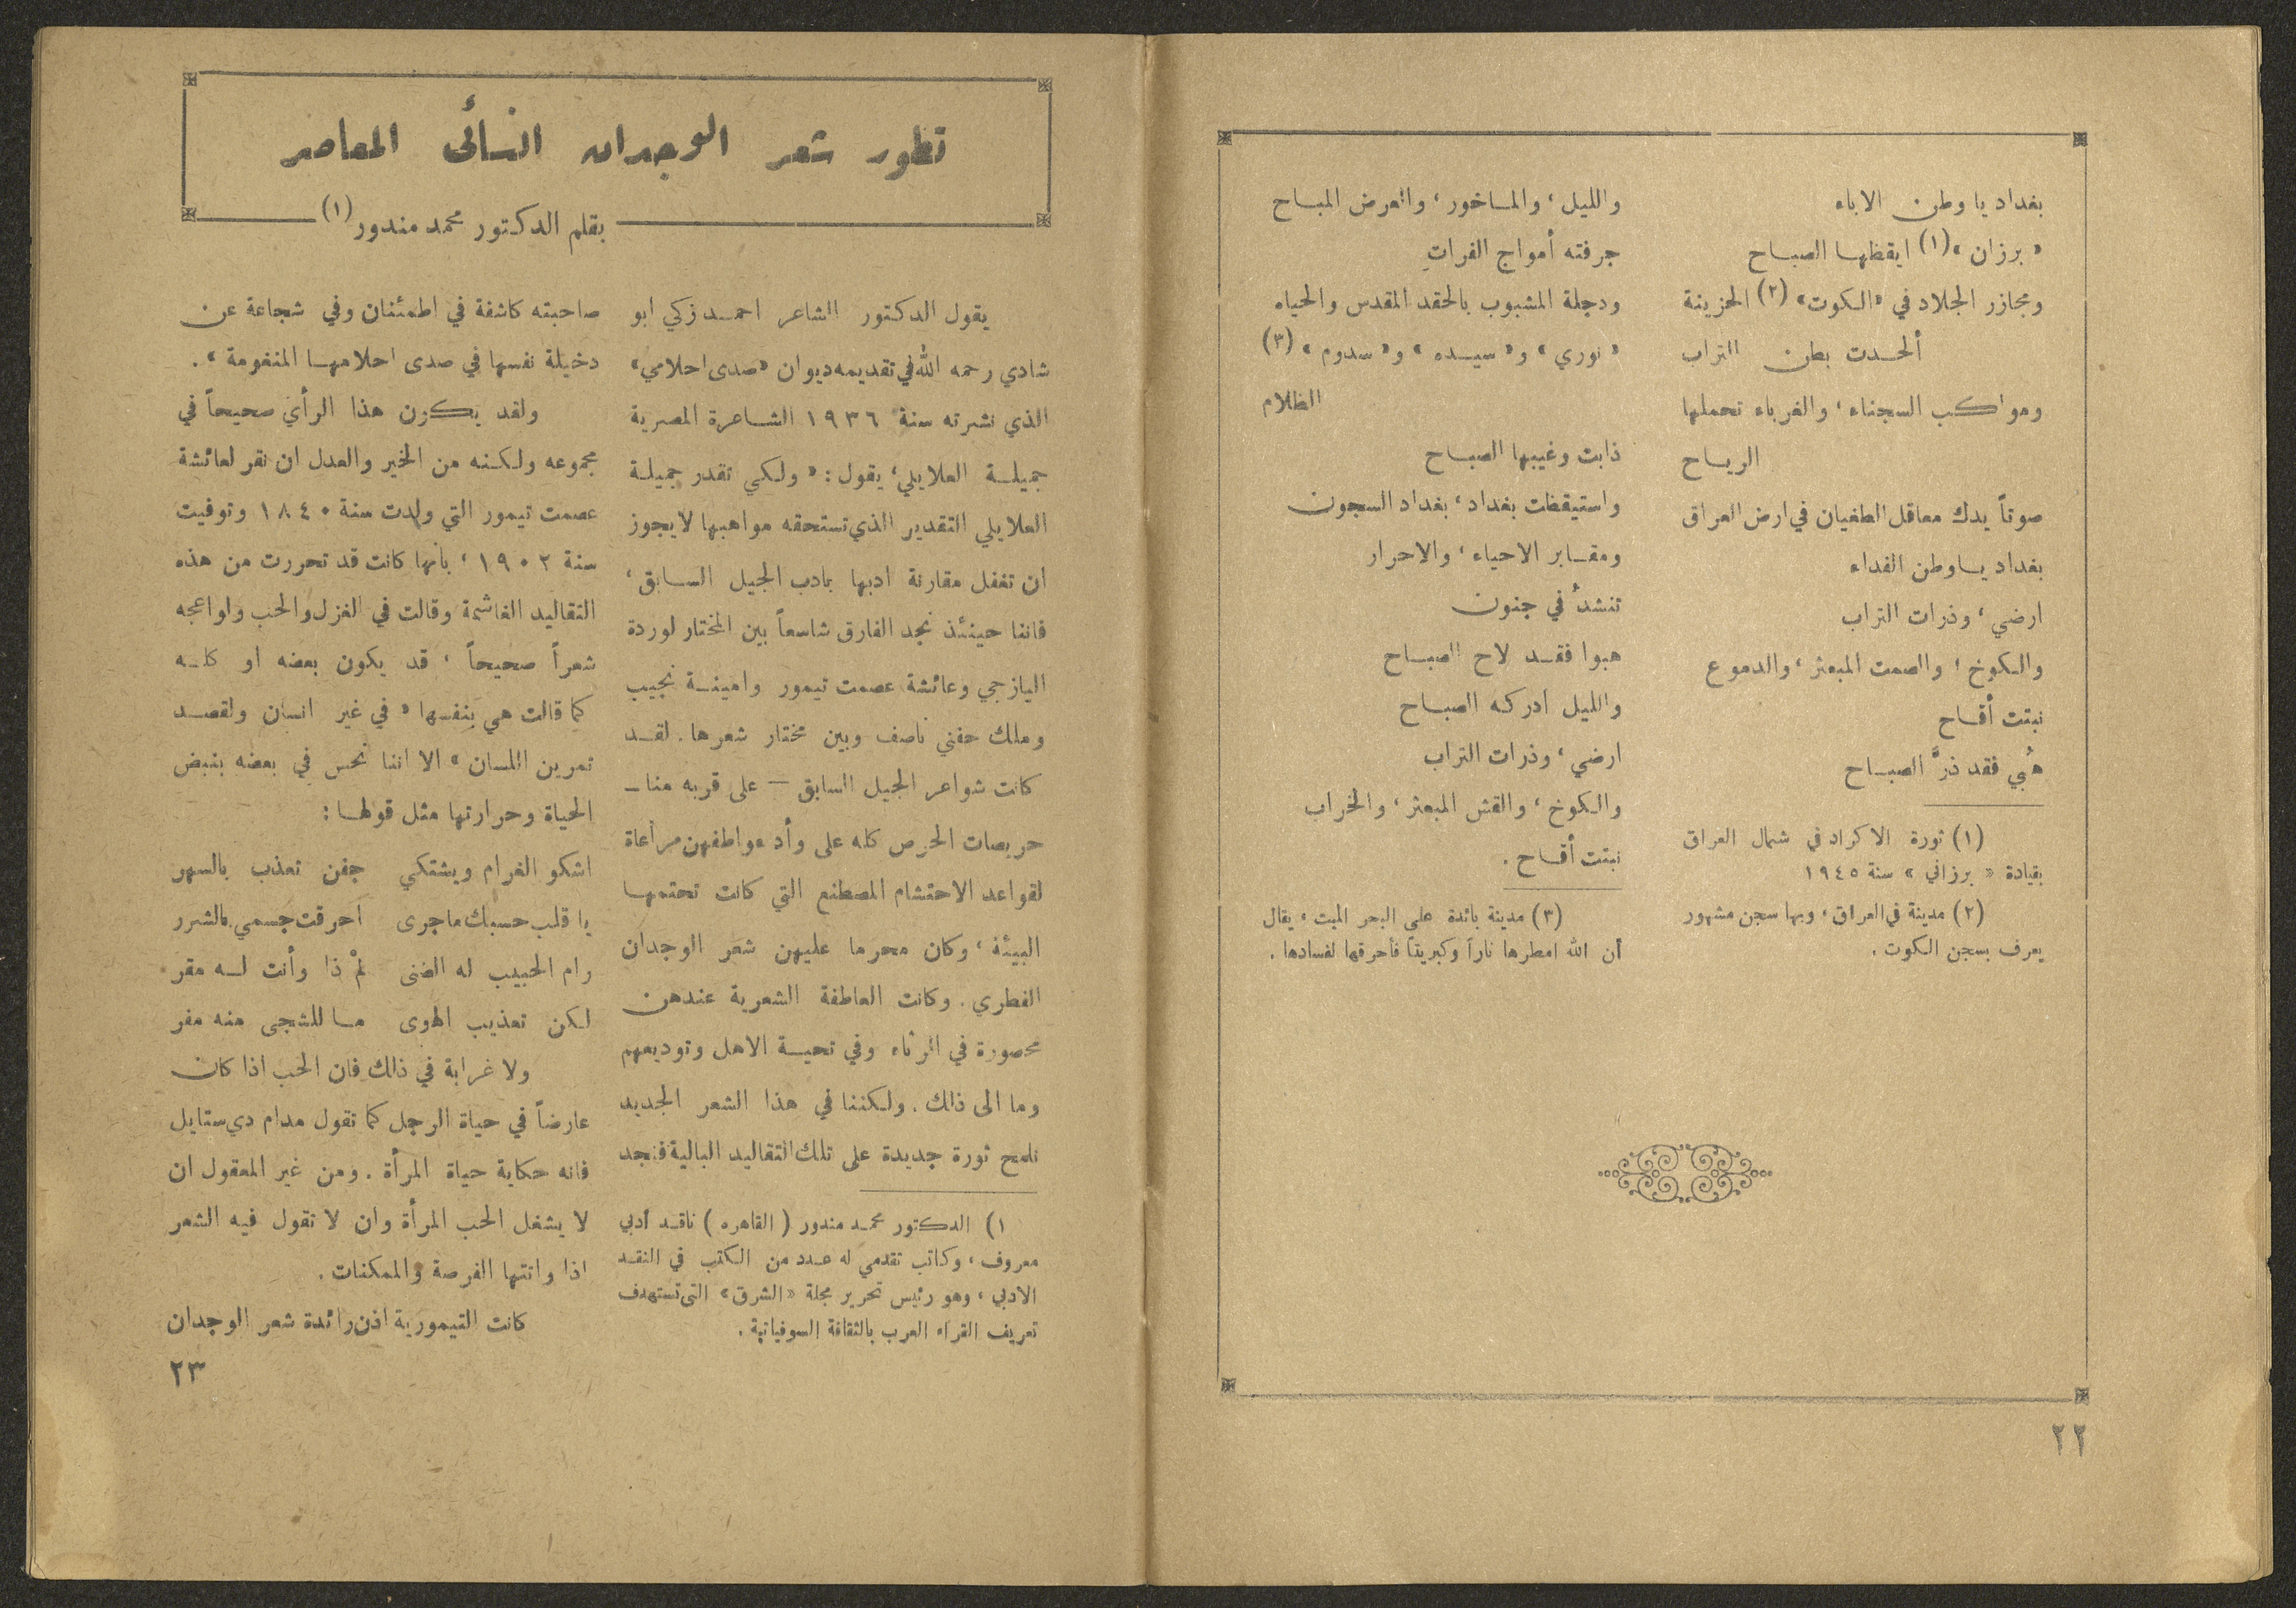 بغداد يا وطن الاباء
« برزان »(١) ايقظها الصباح
ومجازر الجلاد في «الكوت» (٢) الحزينة
ألحدت بطن التراب
ومواكب السجناء ، والغرباء تحملها
الرياح
صوتاً يدك معاقل الطغيان في ارض العراق
بغداد ياوطن الفداء
ارضي ، وذرات التراب
والكوخ ، والصمت المبعثر ، والدموع
نبتت أقاح
هُبي فقد ذرَّ الصباح
(١) ثورة الاكراد في شمال العراق
بقيادة « برزاني » سنة ١٩٤٥
(٢) مدينة في العراق ، وبها سجن مشهور
يعرف بسجن الكوت .
والليل ، والماخور ، والعرض المباح
جرفته أمواج الفراتِ
ودجلة المشبوب بالحقد المقدس والحياه
« نوري » و« سيده » و« سدوم » (٣)
الظلام
ذابت وغيبها الصباح
واستيقظت بغداد ، بغداد السجون
ومقابر الاحياء ، والاحرار
تنشدُ في جنون
هبوا فقد لاح الصباح
والليل ادركه الصباح
ارضي ، وذرات التراب
والكوخ ، والقش المبعثر ، والخراب
نبتت أقاح .
(٣) مدينة بائدة على البحر الميت ، يقال
أن الله امطرها ناراً وكبريتاً فأحرقها لفسادها .
٢٢
تطور شعر الوجدان النسائى المعاصر
بقلم الدكتور محمد مندور (١)
يقول الدكتور الشاعر احمد زكي ابو
شادي رحمه الله في تقديمه ديوان «صدى احلامي»
الذي نشرته سنة ١٩٣٦ الشاعرة المصرية
جميلة العلايلي ، يقول : « ولكي تقدر جميلة
العلايلي التقدير الذي تستحقه مواهبها لا يجوز
ان تغفل مقارنة ادبها بادب الجيل السابق ،
فاننا حينئذ نجد الفارق شاسعاً بين المختار لوردة
اليازجي وعائشة عصمت تيمور وامينة نجيب
وملك حفني ناصف وبين مختار شعرها . لقد
كانت شواعر الجيل السابق – على قربه منا –
حريصات الحرص كله على وأد عواطفهن مراعاة
لقواعد الاحتشام المصطنع التي كانت تحتمها
البيئة ، وكان محرما عليهن شعر الوجدان
الفطري . وكانت العاطفة الشعرية عندهن
محصورة في الرثاء وفي تحية الاهل وتوديعهم
وما الى ذلك . ولكننا في هذا الشعر الجديد
نلمح ثورة جديدة على تلك التقاليد البالية فنجد
١) الدكتور محمد مندور ( القاهره ) ناقد أدبي
معروف ، وكاتب تقدمي له عدد من الكتب في النقد
الادبي ، وهو رئيس تحرير مجلة «الشرق» التي تستهدف
تعريف القراء العرب بالثقافة السوفياتية .
صاحبته كاشفة في اطمئنان وفي شجاعة عن
دخيلة نفسها في صدى احلامها المنغومة » .
ولقد يكون هذا الرأي صحيحاً في
مجموعه ولكنه من الخير والعدل ان نقر لعائشة
عصمت تيمور التي ولدت سنة ١٨٤٠ وتوفيت
سنة ١٩٠٢ ، بانها كانت قد تحررت من هذه
التقاليد الغاشمة وقالت في الغزل والحب ولواعجه
شعراً صحيحاً ، قد يكون بعضه او كله
كما قالت هي بنفسها « في غير انسان ولقصد
تمرين اللسان » الا اننا نحس في بعضه بنبض
الحياة وحرارتها مثل قولها :
اشكو الغرام ويشتكي جفن تعذب بالسهر
يا قلب حسبك ماجرى احرقت جسمي بالشرر
رام الحبيب له الضنى لمْ ذا وأنت له مقر
لكن تعذيب الهوى ما للشجى منه مفر
ولا غرابة في ذلك فان الحب اذا كان
عارضاً في حياة الرجل كما تقول مدام دي ستايل
فانه حكاية حياة المرأة . ومن غير المعقول ان
لا يشغل الحب المرأة وان لا تقول فيه الشعر
اذا واتتها الفرصة والممكنات .
كانت التيمورية اذن رائدة شعر الوجدان
٢٣